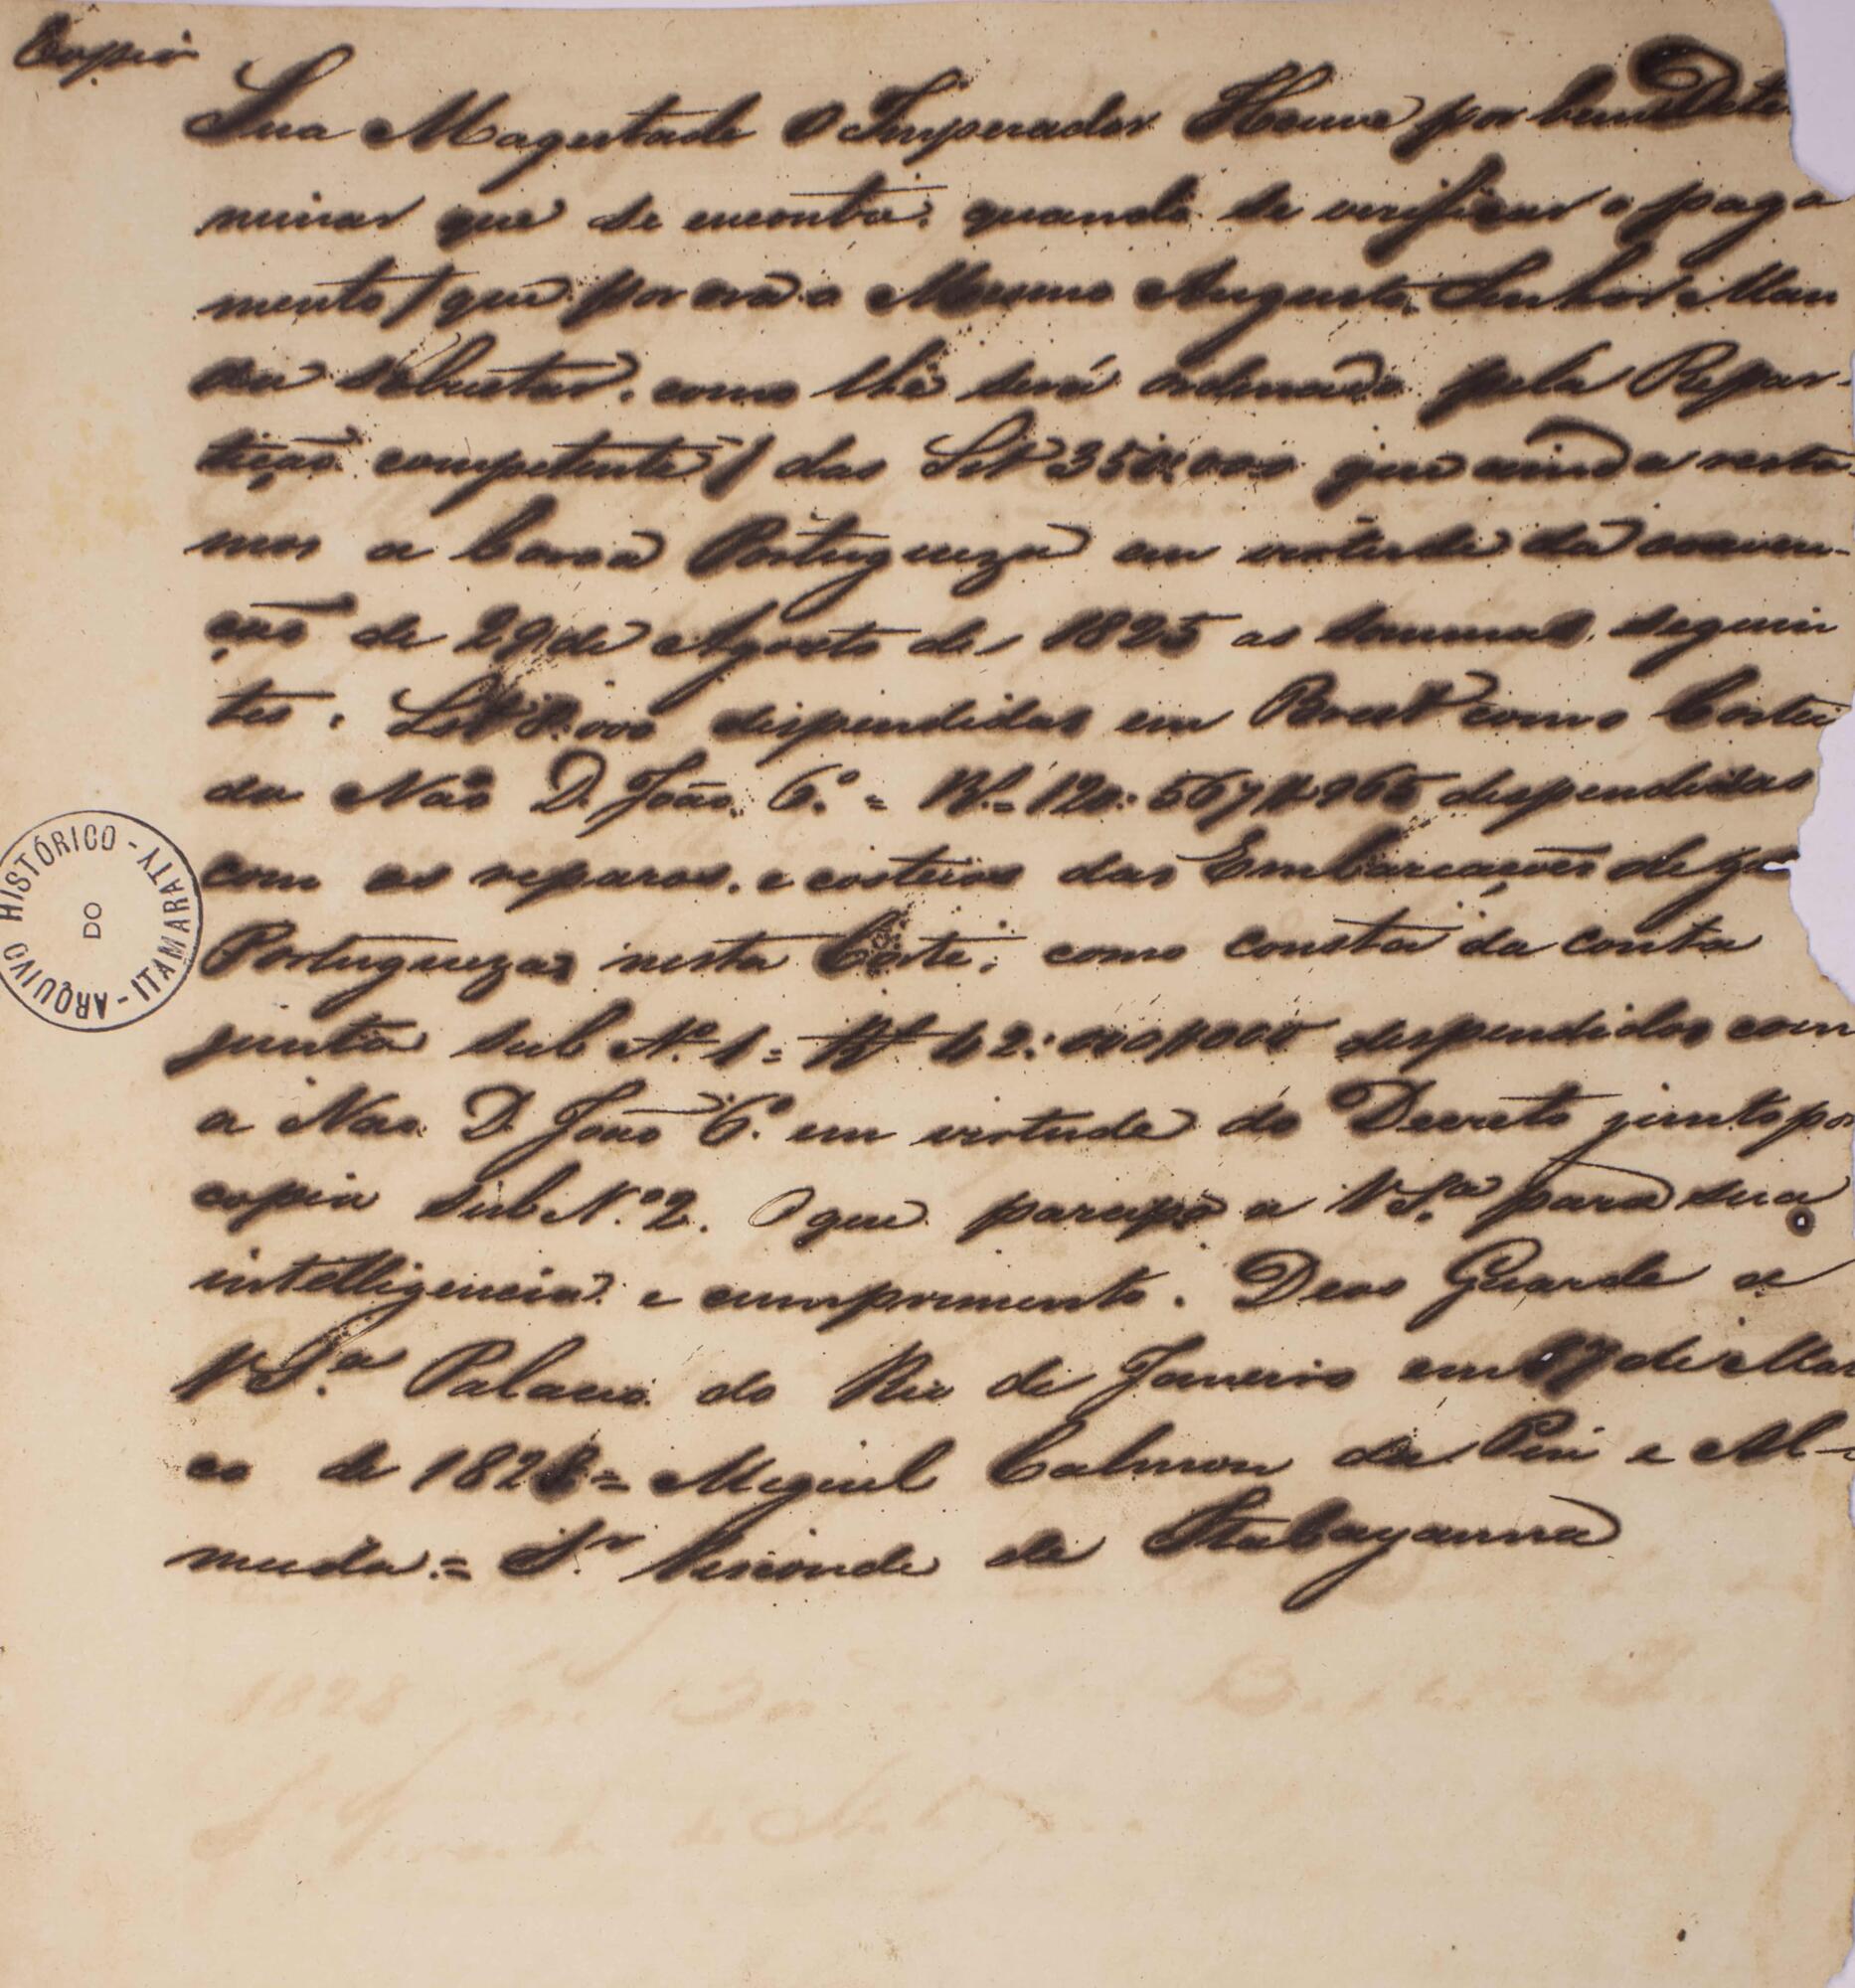 Copia
Sua Magestade O Imperador Houve por bem Deter
minar que se encontra: quando se verificar o paga
mento / que por ora o Mesmo Augusto Senhor Man
da sobrestar, como lhe será ordenado pela Repar-
tição competente / das Lst 350:000 que ainda resta-
mos a Coroa Portugueza em virtude da conven-
ção de 29 de Agosto de 1825 as sommas seguin
tes. Lst 8.000 dispendidas em Brest como Costeio
da Náo D. João 6.º = Rs.= 120:567#965 despendidas
com os reparos, e costeios das Embarcações de gu
Portuguezas nesta Corte; como consta da conta
junta sub N.º 1 = Rs 42:000#000 despendidos com
a Nao D. João 6.º em virtude do Decreto junto por
copia sub N.º 2. O que parcipo a V S.ª para sua
intelligencia e cumprimento. Deos Guarde a
V S.ª Palacio do Rio de Janeiro em 17 de Mar
ço de 1828 = Miguel Calmon du Pin e Al-
meida = S.r Visconde de Itabayanna
ARQUIVO HISTÓRICO - DO - ITAMARATY